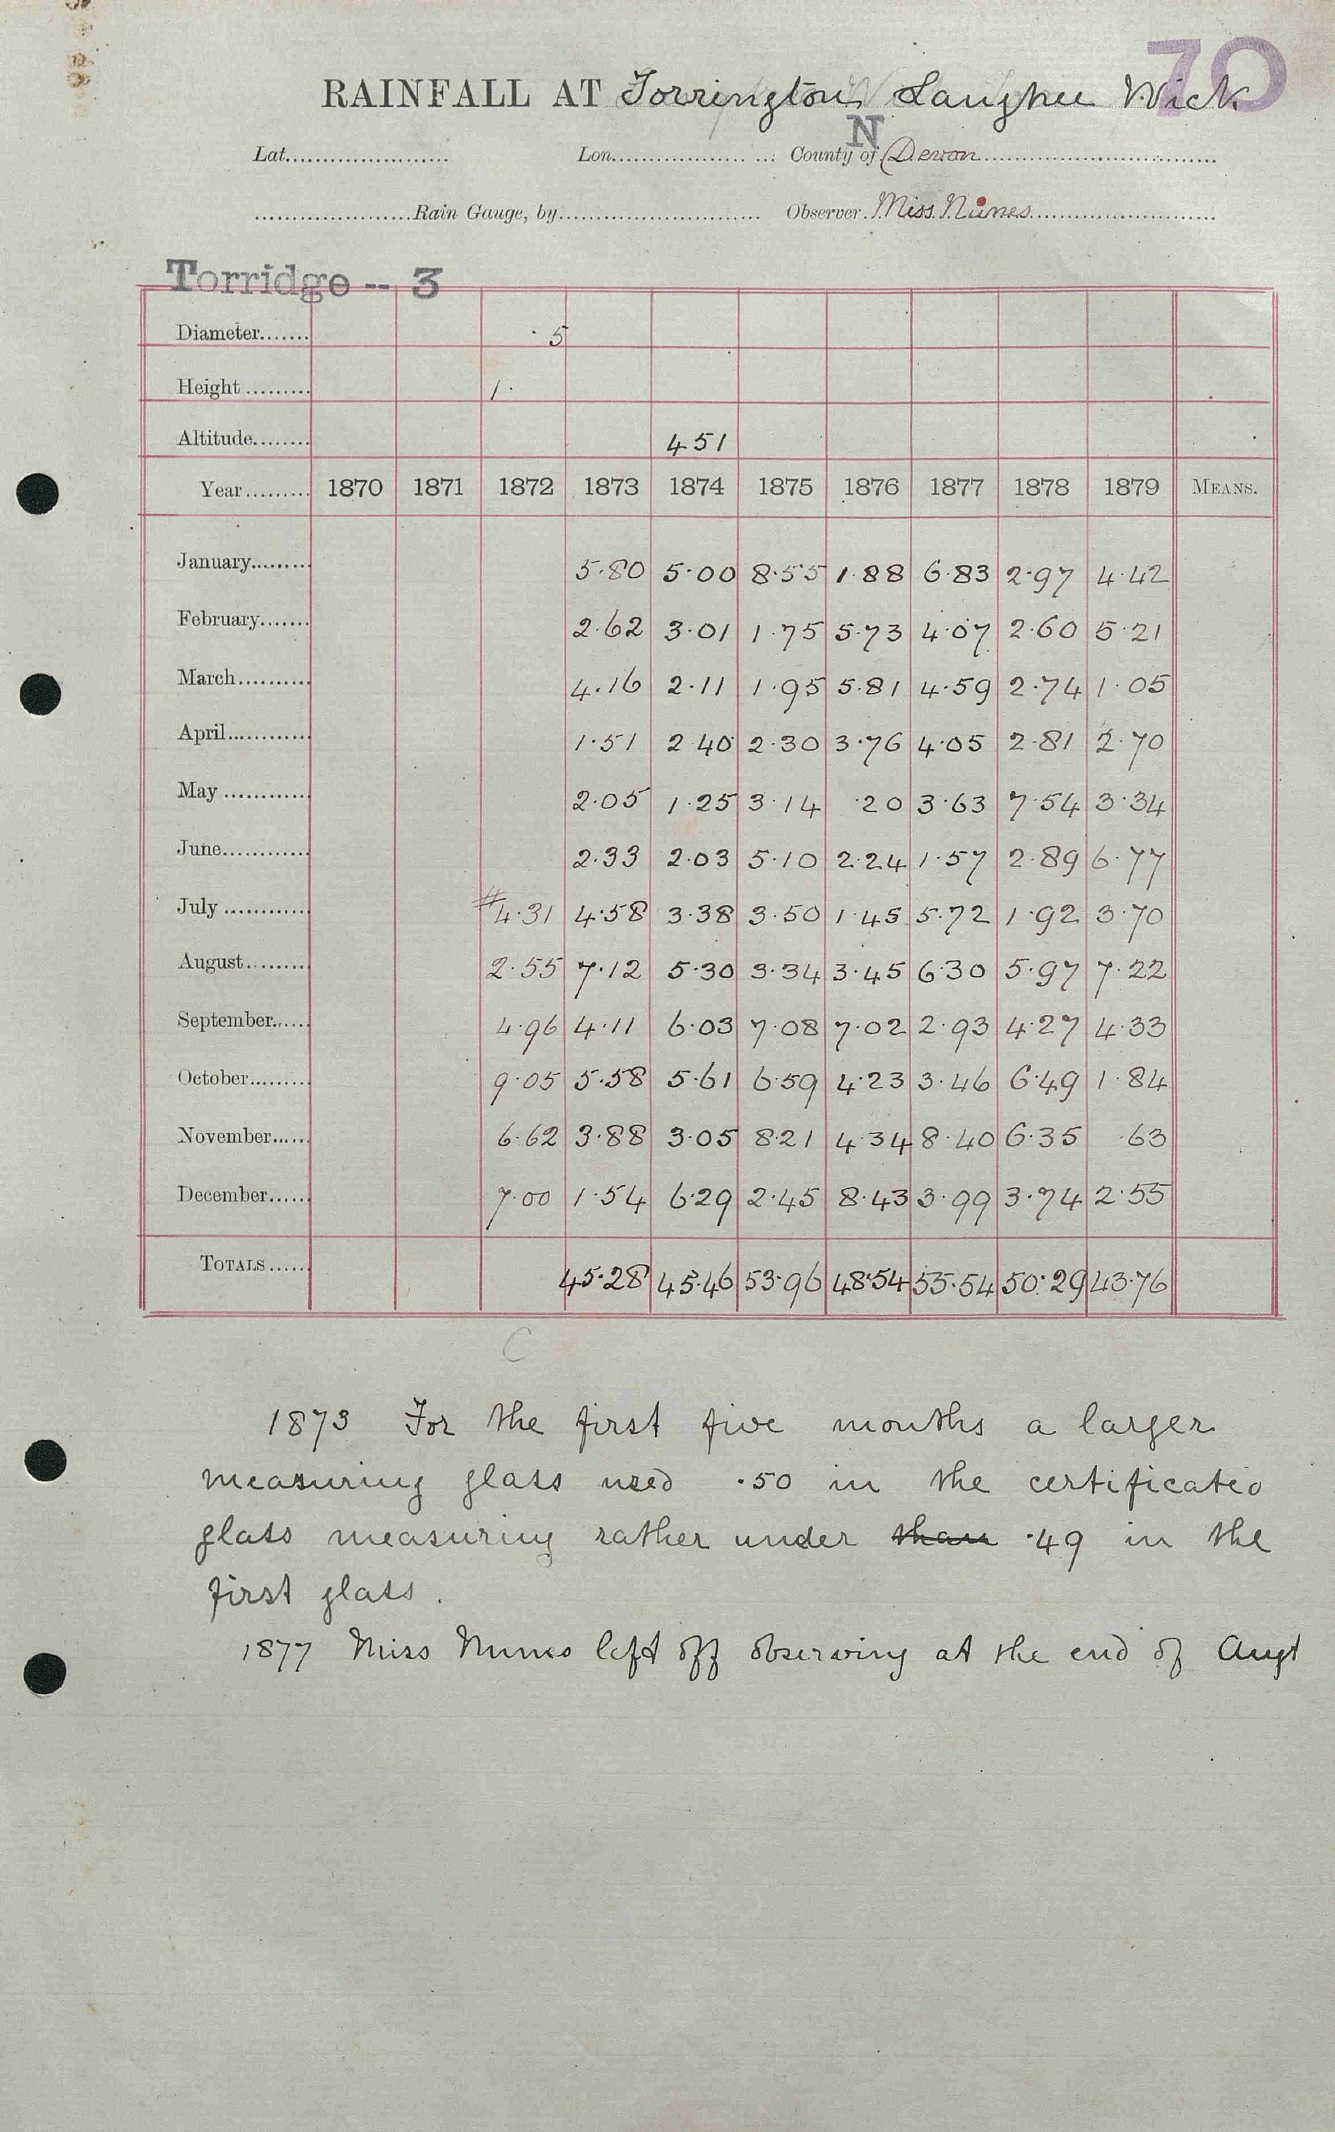 70
RAINFALL AT Torrington, Langhee Wick
N
Lat. Lon. County of Devon
Rain Gauge, by Observer Miss Nunes
Torridge -- 3
Diameter 5
Height 1·
Altitude 451
Year 1870 1871 1872 1873 1874 1875 1876 1877 1878 1879 MEANS.
January 5·80 5·00 8·55 1·88 6·83 2·97 4·42
February 2·62 3·01 1·75 5·73 4·07 2·60 5·21
March 4·16 2·11 1·95 5·81 4·59 2·74 1·05
April 1·51 2 40 2·30 3·76 4·05 2·81 2·70
May 2·05 1·25 3·14 ·20 3·63 7·54 3·34
June 2·33 2·03 5·10 2·24 1·57 2·89 6·77
July #4·31 4·58 3·38 3·50 1·45 5·72 1·92 3·70
August 2·55 7·12 5·30 3·34 3·45 6·30 5·97 7·22
September 4·96 4·11 6·03 7·08 7·02 2·93 4·27 4·33
October 9·05 5·58 5·61 6·59 4·23 3·46 6·49 1·84
November 6·62 3·88 3·05 8·21 4·34 8·40 6·35 ·63
December 7·00 1·54 6·29 2·45 8·43 3·99 3·74 2·55
TOTALS 45·28 45·46 53·96 48·54 55·54 50·29 43·76
C
1873 For the first five months a larger
measuring glass used ·50 in the certificated
glass measuring rather under than ·49 in the
first glass.
1877 Miss Nunes left off observing at the end of Augt